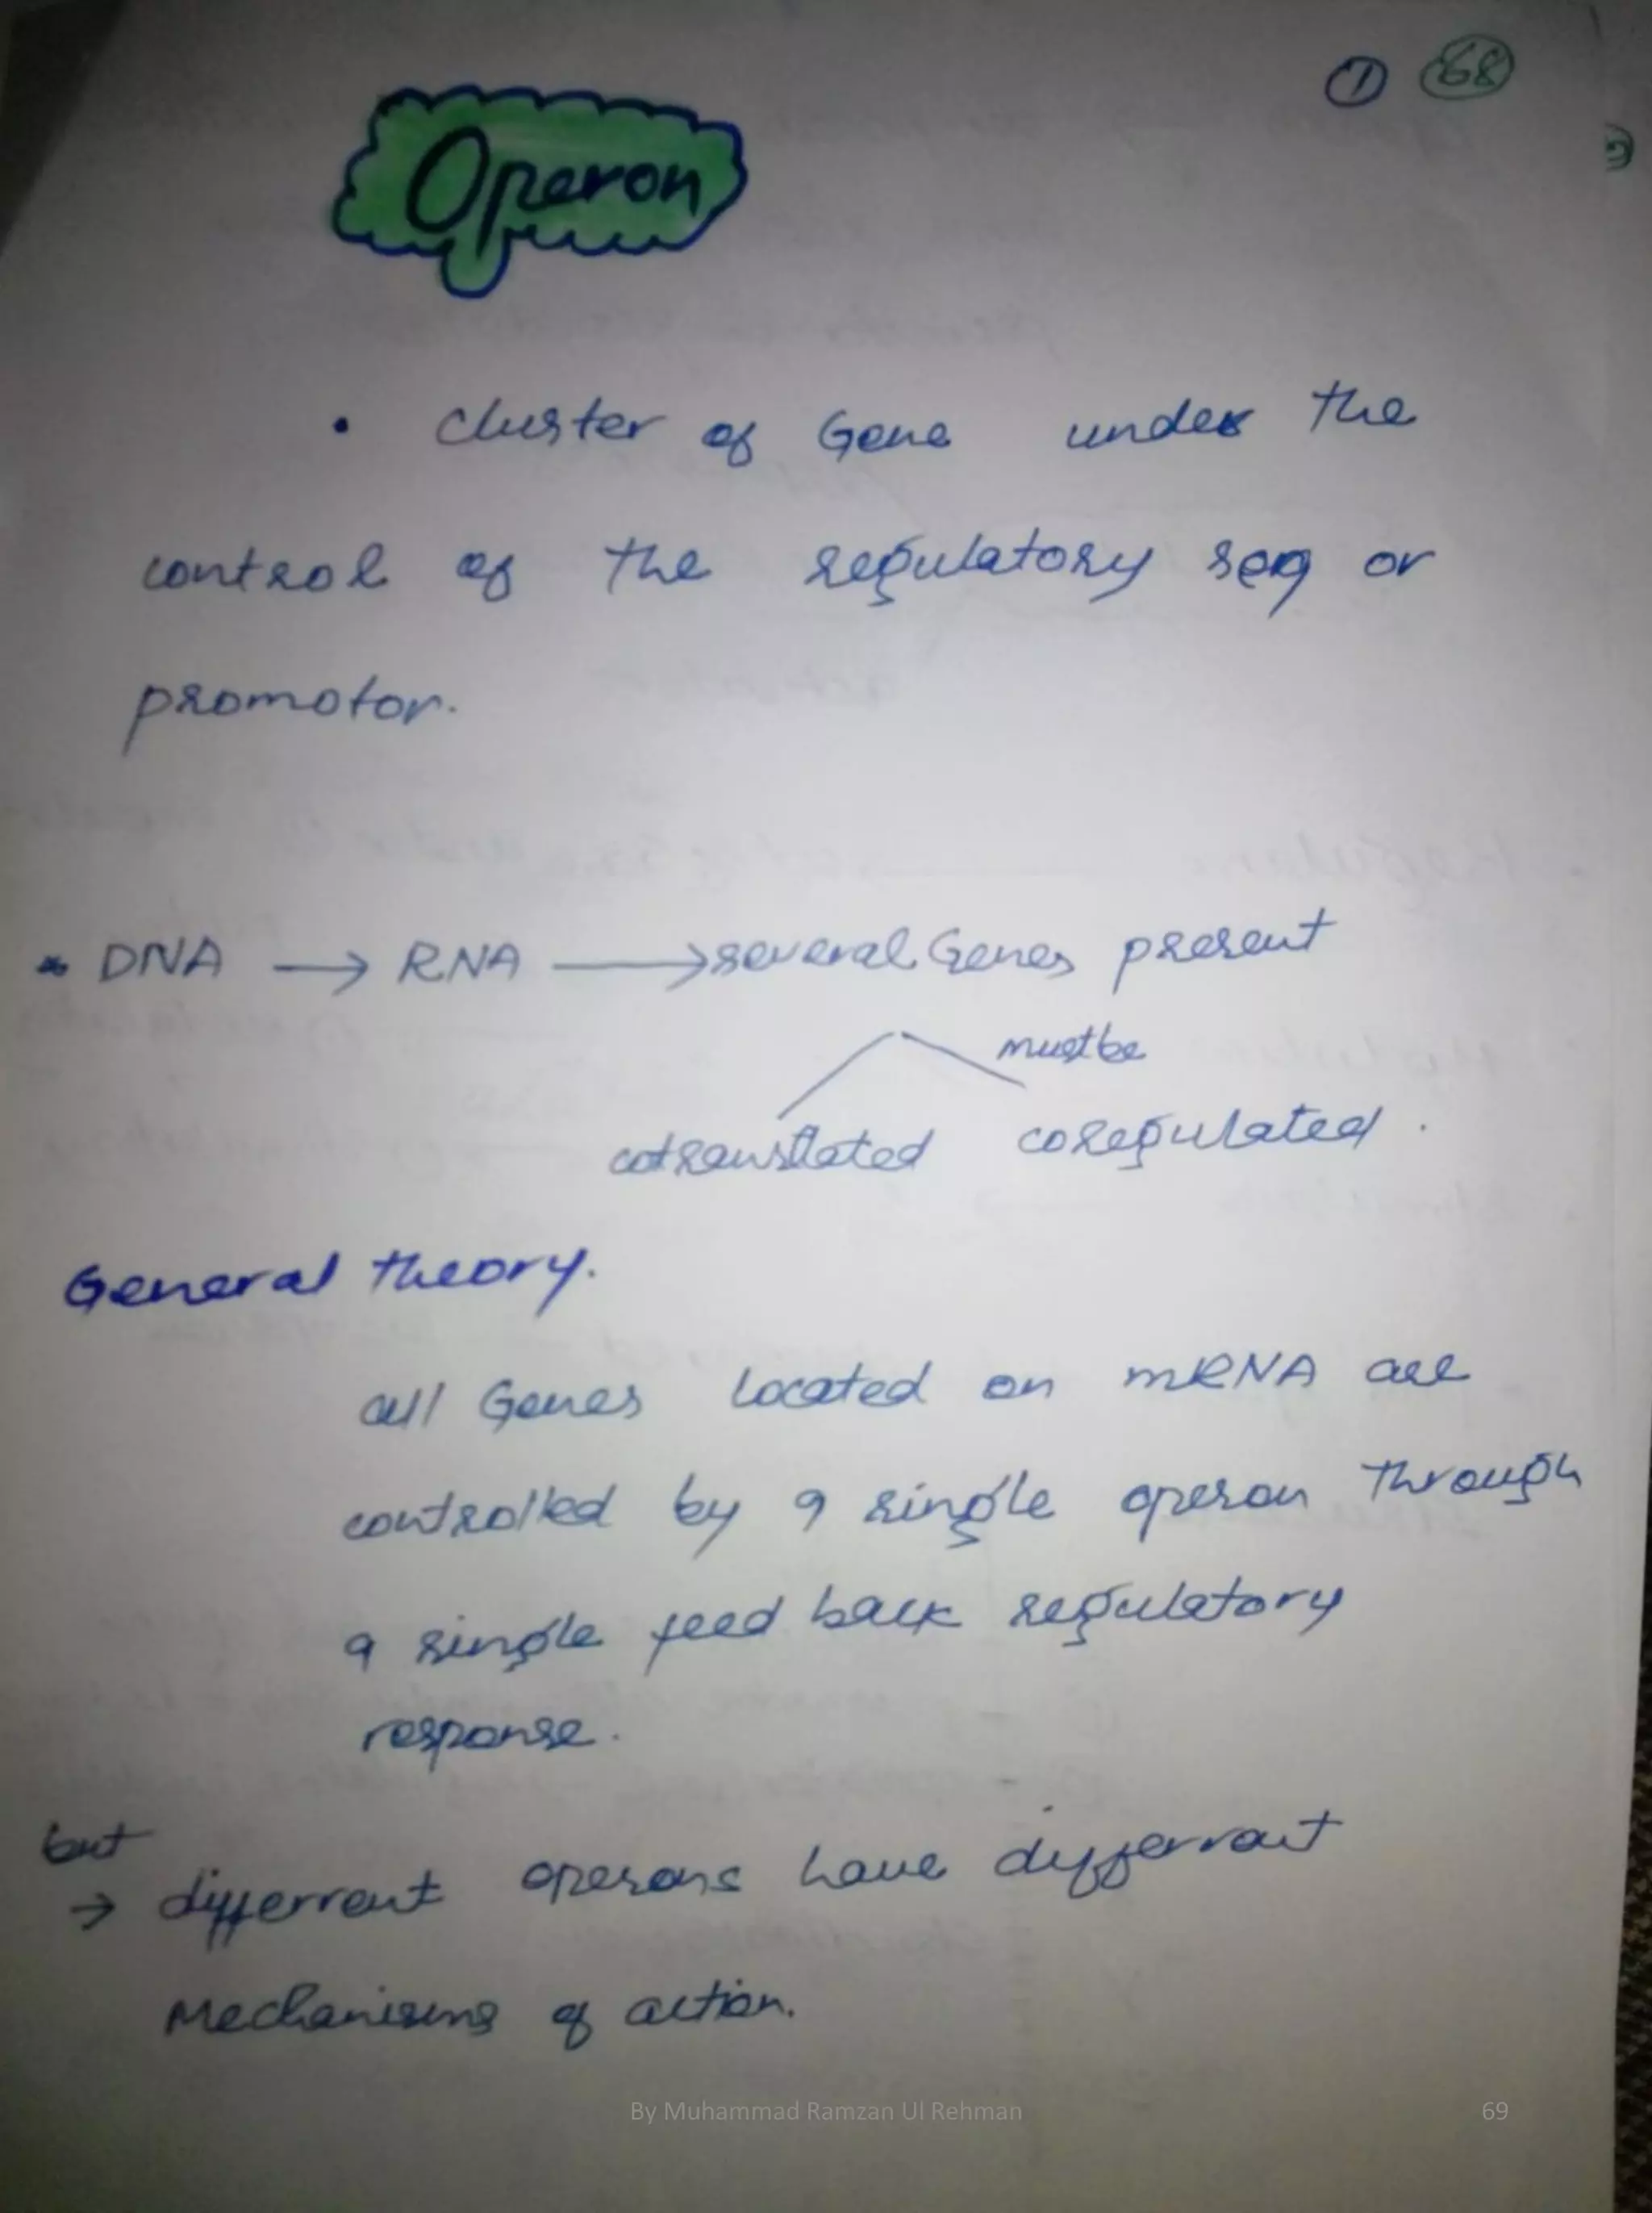 1 68
Operon
• cluster of Gene under the
control of the regulatory seq or
promotor.
* DNA → RNA → several Genes present
must be
cotranslated coregulated.
General theory.
all Genes located on mRNA are
controlled by a single operon through
a single feed back regulatory
response.
but
→ differrent operons have differrent
Mechanisms of action.
By Muhammad Ramzan Ul Rehman 69